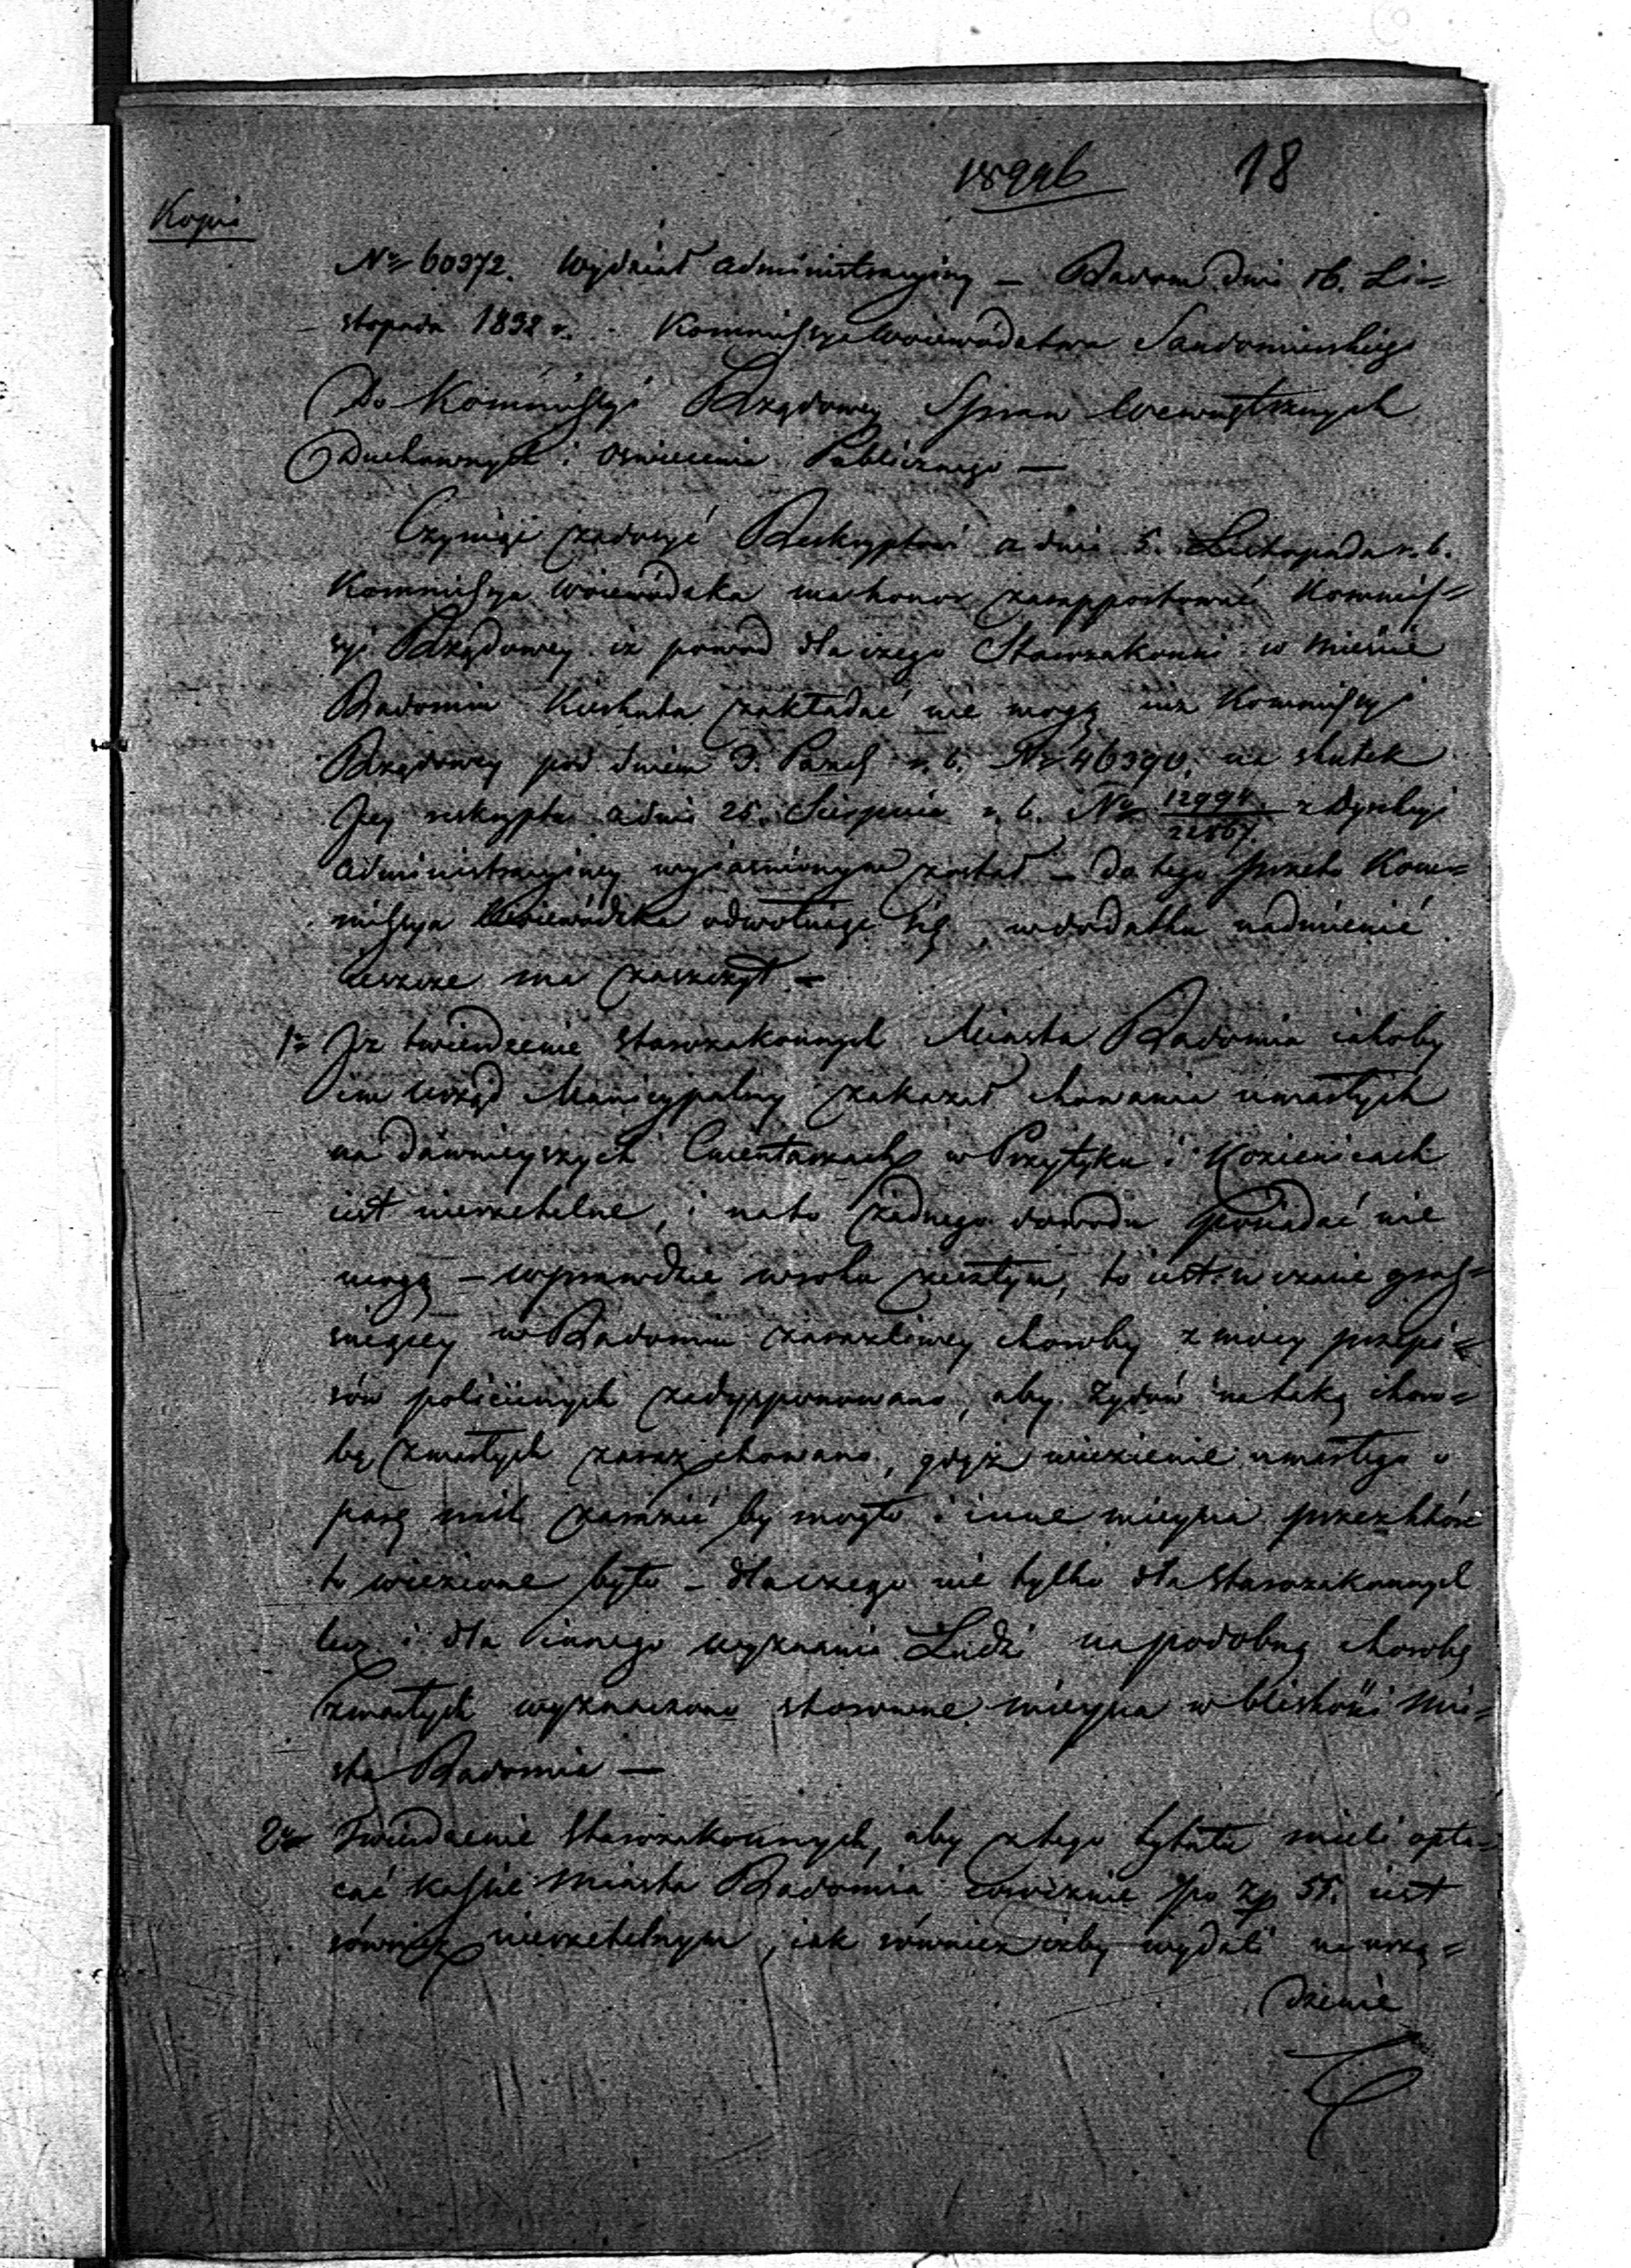 18996 18
Kopia
Nr 60372. Wydział Administracyiny — Radom dnia 16. Li=
stopada 1832 r. Kommissya Woiewództwa Sandomierskiego
Do Kommissyi Rządowey Spraw Wewnętrznych
Duchownych i Oświecenia Publicznego —
Czyniąc zadosyć Reskryptowi z dnia 5. Listopada r. b.
Kommissya Woiewódzka ma honor zarapportować Kommis=
syi Rządowey iż powód dla czego Starozakonni w mieście
Radomiu Kirkuta zakładać nie mogą iuż Kommissyi
Rządowey pod dniem 9. Paźd. r. b. Nr 46390. na skutek
Jey reskryptu z dnia 25. Sierpnia r. b. Nr 12994/22567. z Dyrekcyi
Administracyiney wyiaśnionym został — do tego przeto Kom=
missya Woiewódzka odwołuiąc się, w dodatku nadmienić
ieszcze ma zaszczyt —
1o Iż twierdzenie starozakonnych Miasta Radomia iakoby
im Urząd Municypalny zakazał chowania umarłych
na dawnieyszych Cmentarzach w Przytyku i Kozienicach
iest nierzetelne, i na to żadnego dowodu posiadać nie
mogą — wprawdzie w roku zeszłym, to iest w czasie gras=
suiącey w Radomiu zaraźliwey choroby z mocy przepi=
sów policyinych zadysponowano, aby Żydów na taką choro=
bę zmarłych zaraz chowano, gdyż wiezienie umarłego o
parę mil zarazić by mogło i inne mieysca przez które
to wiezione było — dla czego nie tylko dla starozakonnych
lecz i dla innego wyznania Ludzi na podobną chorobę
zmarłych wyznaczono stosowne mieysca w bliskości mia=
sta Radomia —
2o Twierdzenie starozakonnych, aby z tego tytułu mieli opła=
cać Kassie Miasta Radomia corocznie po Zp 55. iest
również nierzetelnym, iak również iżby wydali na urzą=
dzenie